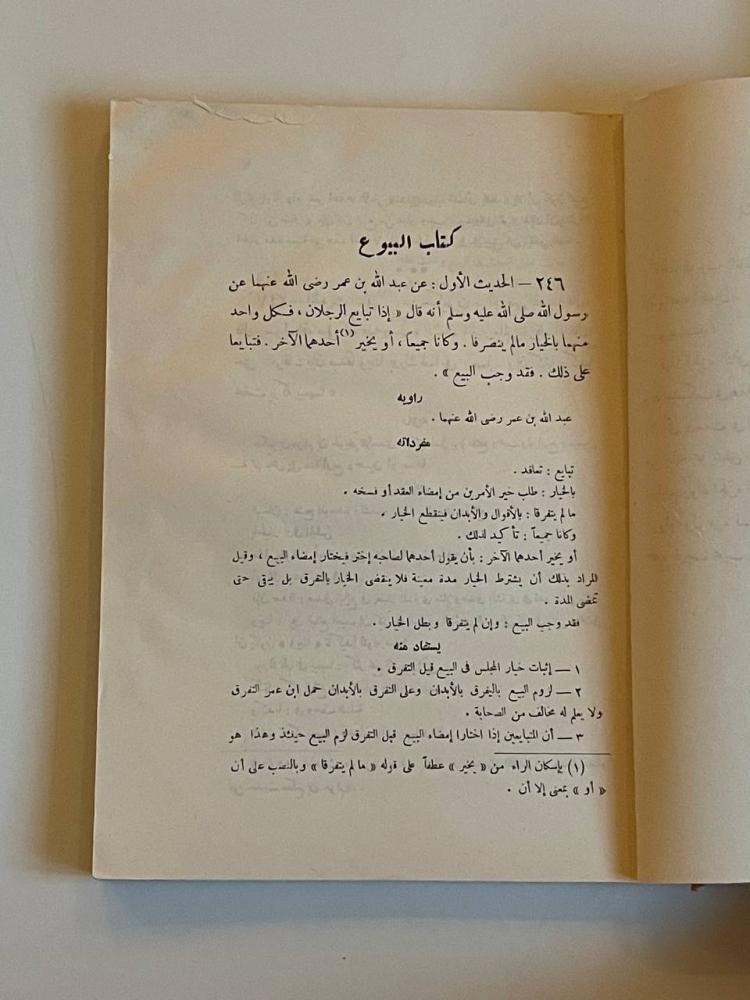 كتاب البيوع
٢٤٦ – الحديث الأول : عن عبد الله بن عمر رضى الله عنهما عن
رسول الله صلى الله عليه وسلم أنه قال « إذا تبايع الرجلان ، فكل واحد
منهما بالخيار مالم يتصرفا . وكانا جميعا ، أو يخير (١) أحدهما الآخر . فتبايعا
على ذلك . فقد وجب البيع » .
راويه
عبد الله بن عمر رضى الله عنهما .
مفرداته
تبايع : تعاقد .
بالخيار : طلب خير الأمرين من إمضاء العقد أو فسخه .
مالم يتفرقا : بالأقوال والأبدان فينقطع الخيار .
وكانا جميعاً : تأكيد لذلك .
أو يخير أحدهما الآخر : بأن يقول أحدهما لصاحبه إختر فيختار إمضاء البيع ، وقيل
المراد بذلك أن يشترط الخيار مدة معينة فلا ينقضى الخيار بالتفرق بل يبقى حتى
تمضى المدة .
فقد وجب البيع : وإن لم يتفرقا وبطل الخيار .
يستفاد منه
١ – إثبات خيار المجلس فى البيع قبل التفرق .
٢ – لزوم البيع باليفرق بالأبدان وعلى التفرق بالأبدان حمل ابن عمر التفرق
ولا يعلم له مخالف من الصحابة .
٣ – أن المتبايعين إذا اختارا إمضاء البيع قبل التفرق لزم البيع حينئذ وهذا هو
(١) بإسكان الراء من « يخير » عطفاً على قوله « مالم يتفرقا » وبالنصب على أن
« أو » بمعنى إلا أن .